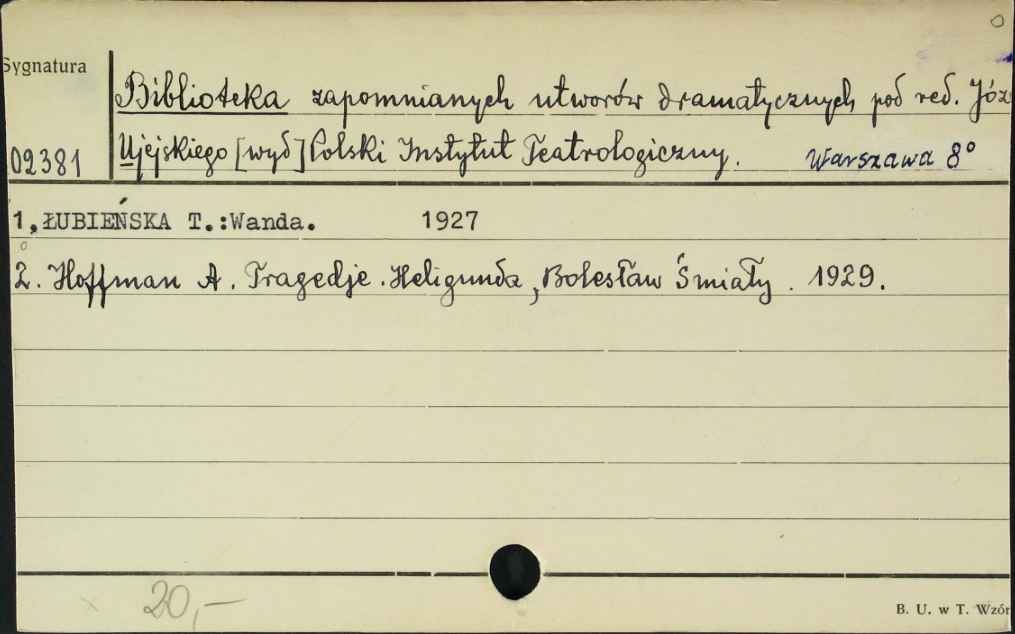 Sygnatura
Biblioteka zapomnianych utworów dramatycznych pod red. Józ
09381 Ujejskiego [wyd] Polski Instytut Teatrologiczny. Warszawa 8°
1, ŁUBIEŃSKA T.:Wanda. 1927
2. Hoffman A. Tragedje. Heligunda, Bolesław Śmiały. 1929.
20,—
B. U. w T. Wzór